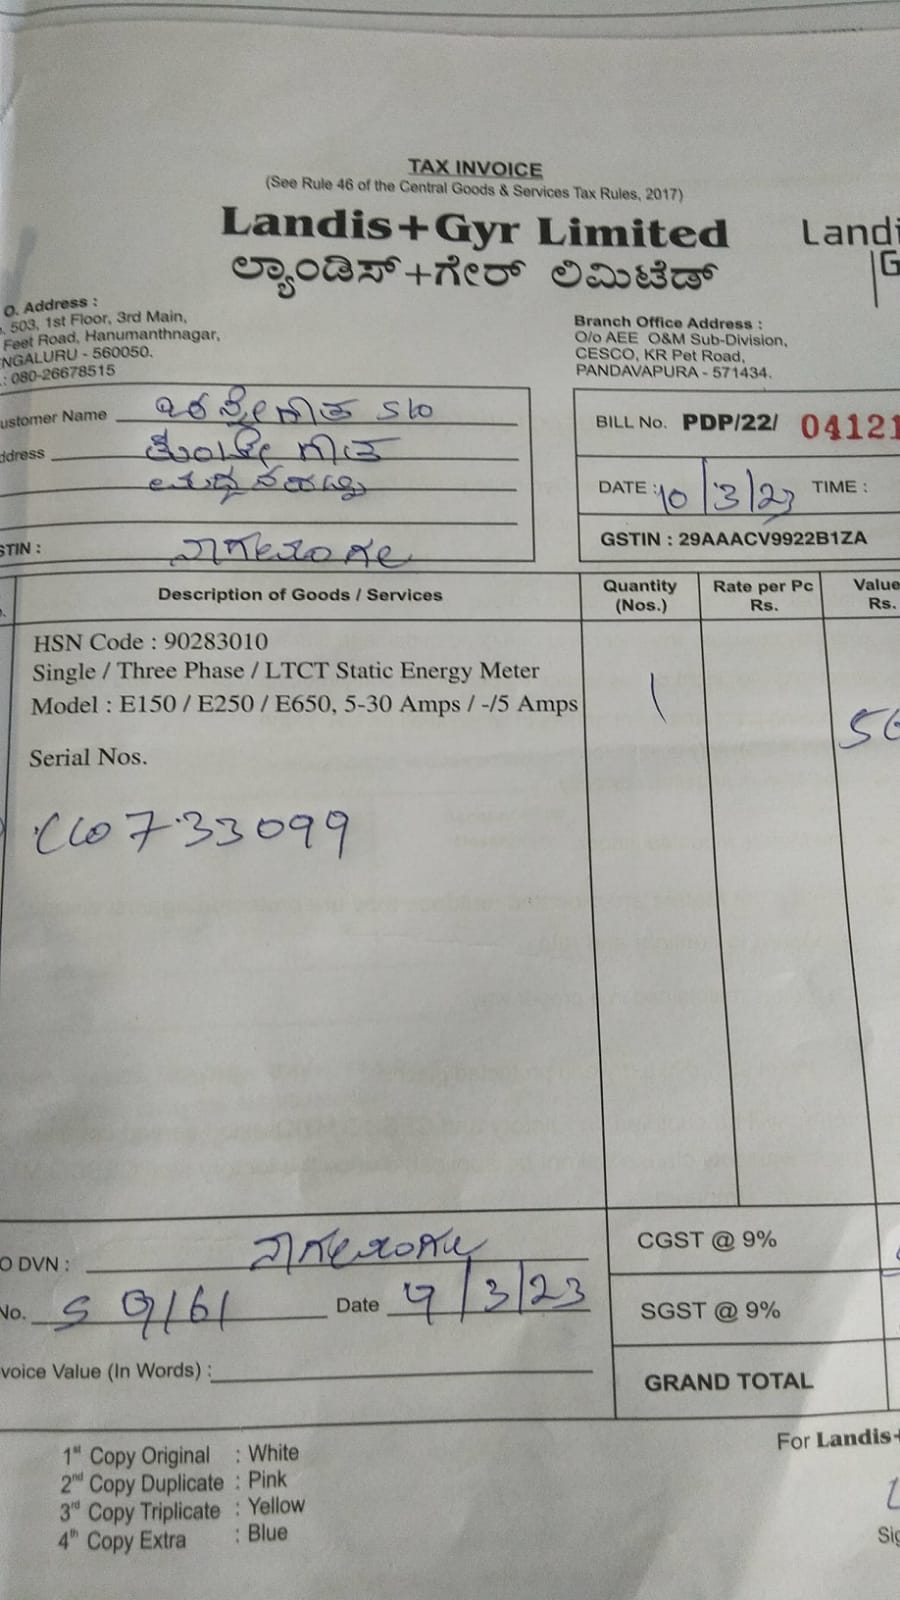 TAX INVOICE
(See Rule 46 of the Central Goods & Services Tax Rules, 2017)
Landis+Gyr Limited
Landi
ಲ್ಯಾಂಡಿಸ್+ಗೇರ್ ಲಿಮಿಟೆಡ್
G
O. Address :
503, 1st Floor, 3rd Main,
Feet Road, Hanumanthnagar,
NGALURU - 560050.
: 080-26678515
Branch Office Address :
O/o AEE O&M Sub-Division,
CESCO, KR Pet Road,
PANDAVAPURA - 571434.
ustomer Name S/o
ddress
STIN :
BILL No. PDP/22/ 04121
DATE : 10/3/23 TIME :
GSTIN : 29AAACV9922B1ZA
Description of Goods / Services
Quantity (Nos.)
Rate per Pc Rs.
Value Rs.
HSN Code : 90283010
Single / Three Phase / LTCT Static Energy Meter
Model : E150 / E250 / E650, 5-30 Amps / -/5 Amps
1
Serial Nos.
733099
O DVN :
No. Date 9/3/23
voice Value (In Words) :
CGST @ 9%
SGST @ 9%
GRAND TOTAL
1st Copy Original : White
2nd Copy Duplicate : Pink
3rd Copy Triplicate : Yellow
4th Copy Extra : Blue
For Landis+
Sig